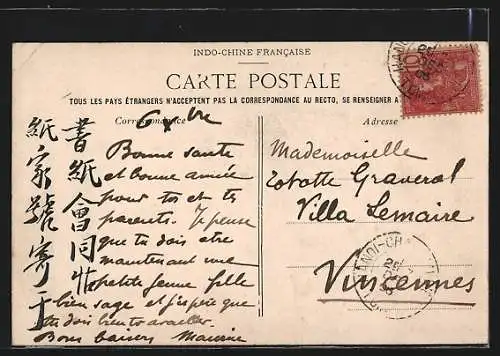 INDO-CHINE FRANÇAISE
CARTE POSTALE
TOUS LES PAYS ÉTRANGERS N'ACCEPTENT PAS LA CORRESPONDANCE AU RECTO, SE RENSEIGNER A
Correspondance
Adresse
10
HANOI
Bonne santé
et bonne année
pour toi et tes
parents. Je pense
que tu dois être
maintenant une
petite jeune fille
bien sage et j'espère que
tu dois bien travailler.
Bons baisers
書紙會同
紙家號寄于
Mademoiselle
Graveral
Villa Lemaire
Vincennes
HANOI